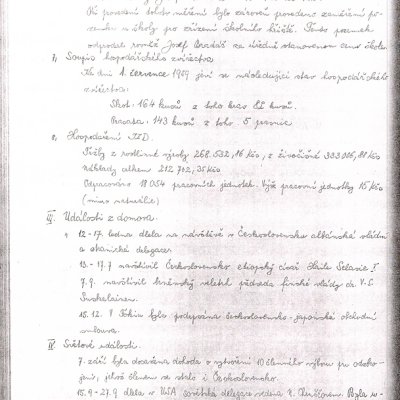 Při provedení tohoto měření bylo zároveň provedeno zaměření po-
zemku u školy pro zřízení školního hřiště. Tento pozemek
odprodal rovněž Josef Bradáč za úředně stanovenou cenu školám.
7, Soupis hospodářského zvířectva
Ke dni 1. července 1959 jeví se následující stav hospodářského
zvířectva:
Skot: 164 kusů z toho krav 82 kusů.
Prasata: 143 kusů z toho 5 prasnic
8, Hospodaření JZD.
Tržby z rostlinné výroby 268.532,16 Kčs, z živočišné 333.006,81 Kčs
Náklady celkem 212.742,35 Kčs
Odpracováno 18 054 pracovních jednotek. Výše pracovní jednotky 15 Kčs
(mimo naturálie)
III. Události z domova.
12.-17. ledna dlela na návštěvě v Československu albánská vládní
a stranická delegace
13.-17.7 navštívil Československo etiopský císař Haile Selasie I
7.9. navštívil brněnský veletrh předseda finské vlády dr. V.S.
Suskelainen.
15.12. V Tokiu byla podepsána československo-japonská obchodní
smlouva.
IV Světové události.
7. září byla dosažena dohoda o vytvoření 10 členného výboru pro odzbro-
jení, jehož členem se stalo i Československo.
15.9.-27.9. dlela v USA sovětská delegace vedená N. Chruščovem. Byla u-